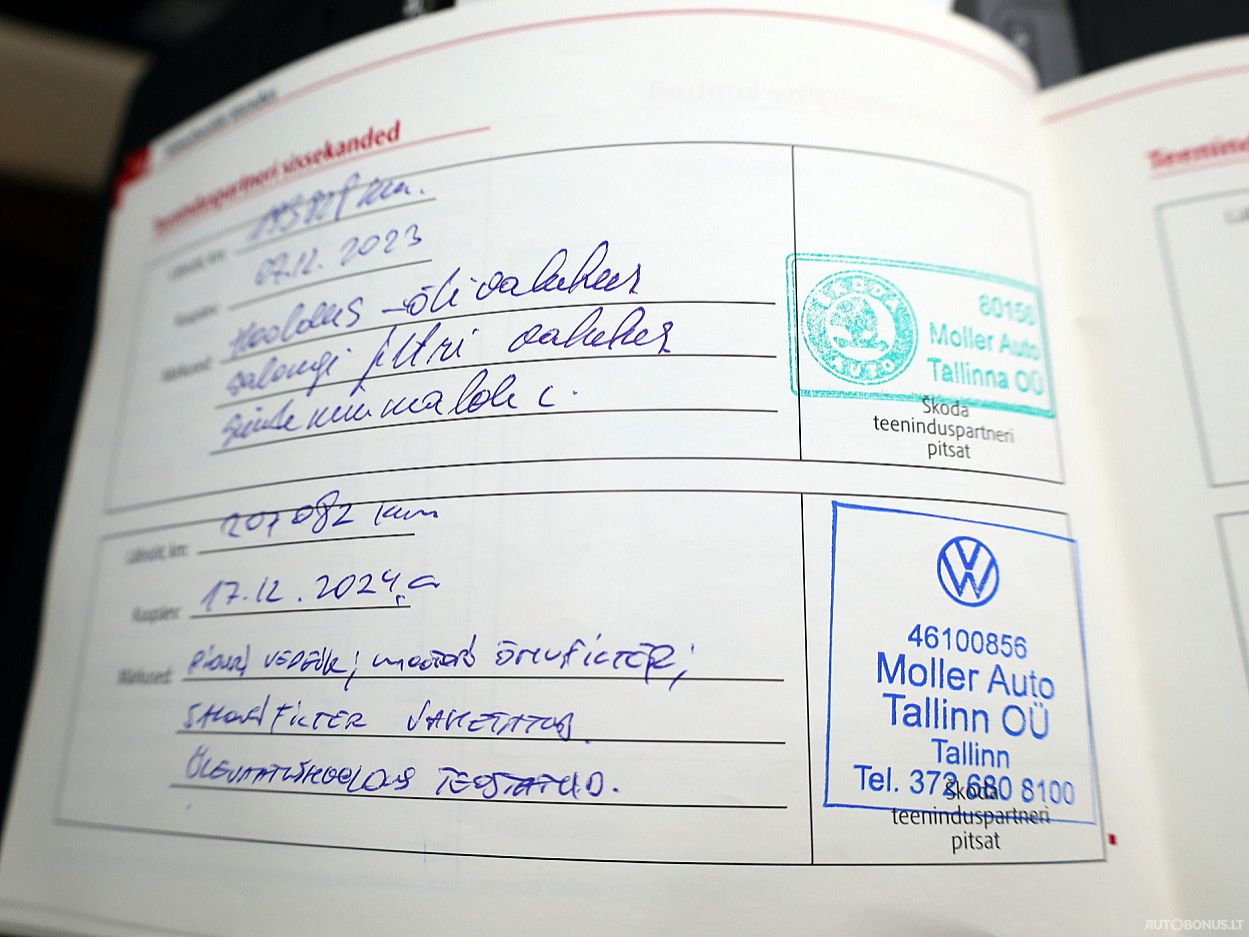 Teeninduspartneri sissekanded
km.
Kuupäev:
07.12. 2023
Märkused:
Hooldus - õlivahetus
salongi filtri vahetus
ŠKODA
AUTO
80150
Moller Auto
Tallinna OÜ
Škoda
teeninduspartneri
pitsat
Läbisõit, km:
207 082 km
Kuupäev:
17.12.2024.a
Märkused:
PIDURIVEDELIK; mootori ÕHUFILTER;
SALONGIFILTER VAHETATUD.
ÜLEVAATUSHOOLDUS TEOSTATUD.
46100856
Moller Auto
Tallinn OÜ
Tallinn
Tel. 372 680 8100
Škoda
teeninduspartneri
pitsat
Teenind
AUTOBONUS.LT